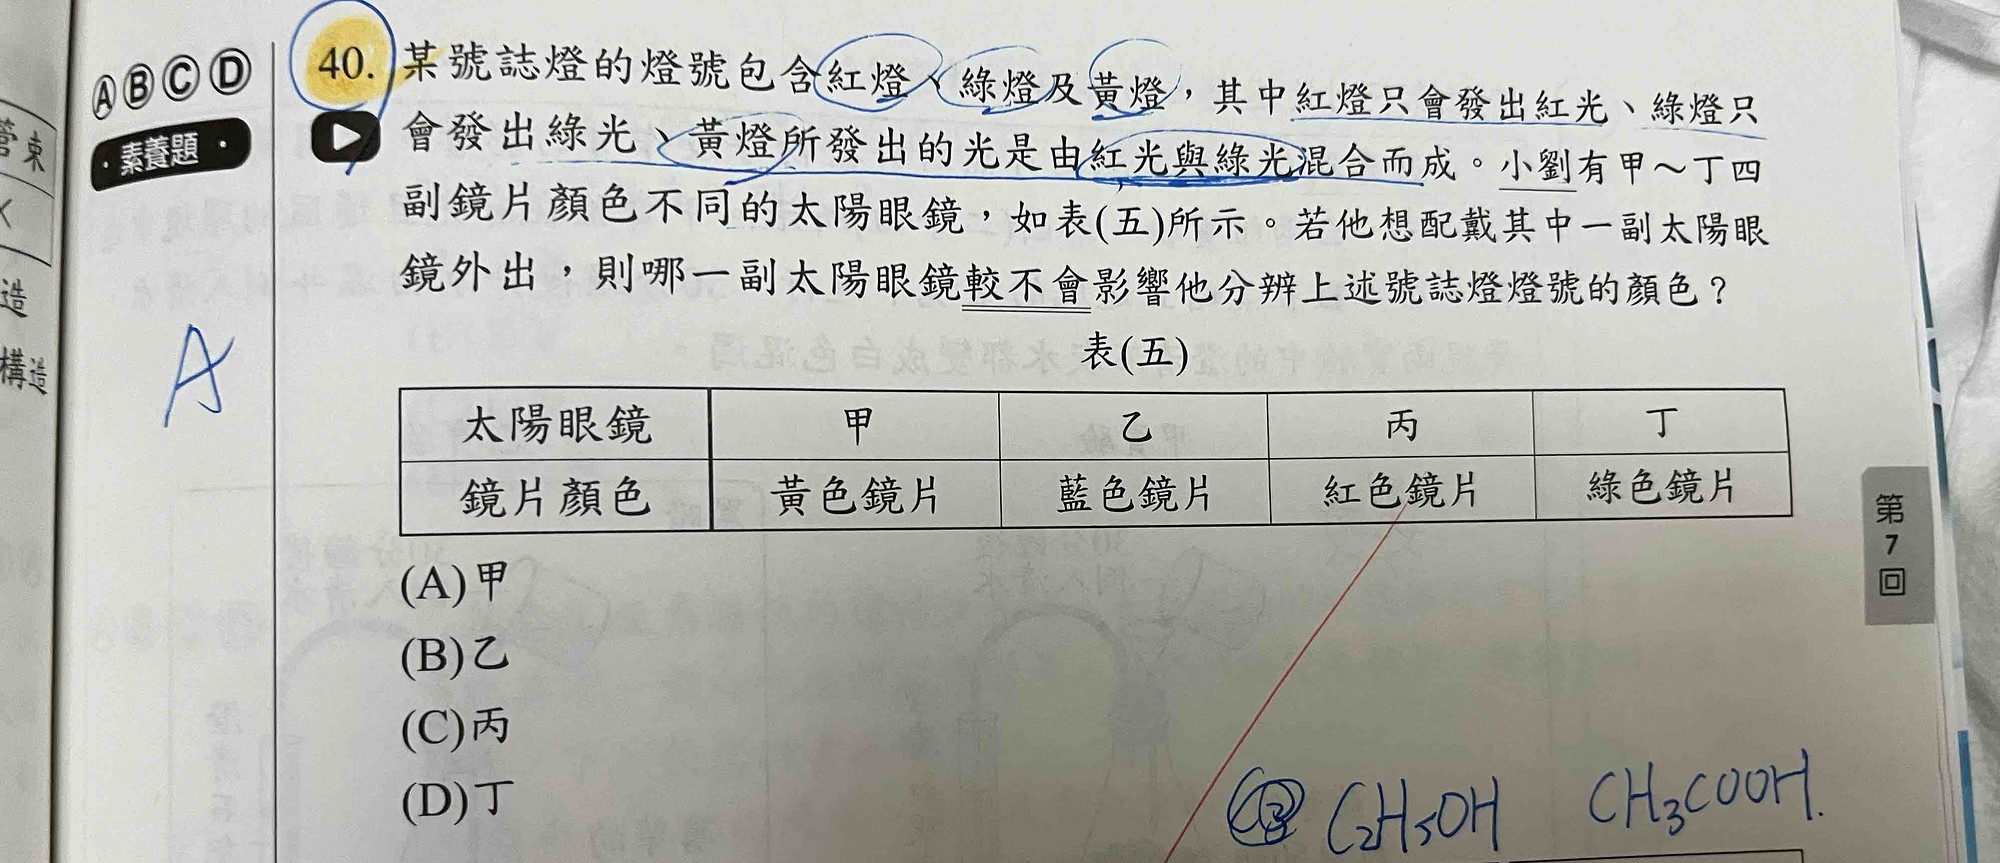 管束
造
構造
ⒶⒷⒸⒹ
·素養題·
A
40. 某號誌燈的燈號包含紅燈、綠燈及黃燈，其中紅燈只會發出紅光、綠燈只
會發出綠光、黃燈所發出的光是由紅光與綠光混合而成。小劉有甲～丁四
副鏡片顏色不同的太陽眼鏡，如表(五)所示。若他想配戴其中一副太陽眼
鏡外出，則哪一副太陽眼鏡較不會影響他分辨上述號誌燈燈號的顏色？
表(五)
太陽眼鏡 甲 乙 丙 丁
鏡片顏色 黃色鏡片 藍色鏡片 紅色鏡片 綠色鏡片
(A)甲
(B)乙
(C)丙
(D)丁
第7回
C₂H₅OH CH₃COOH.